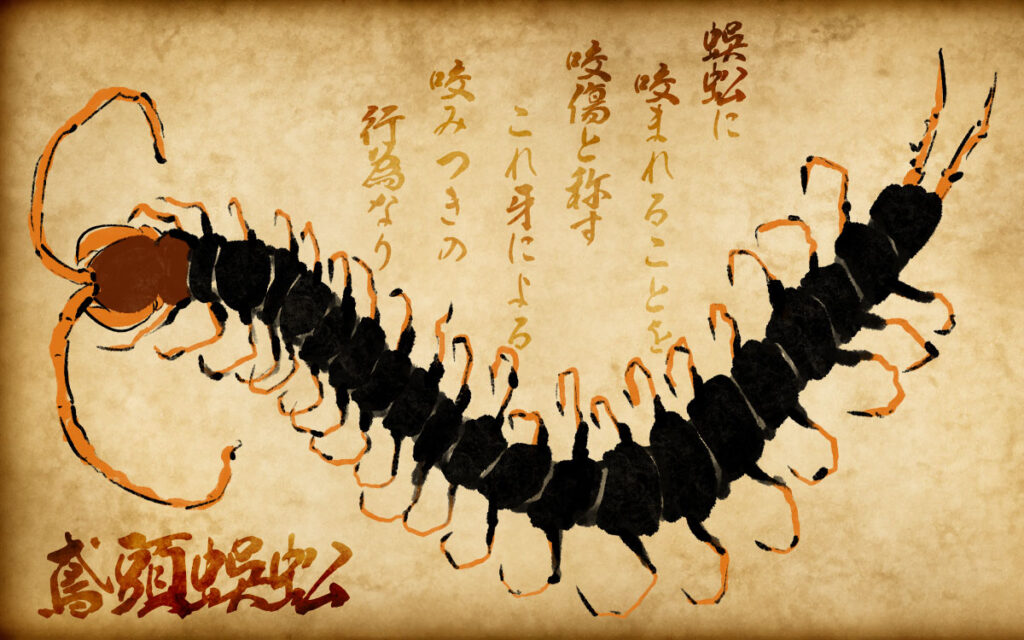 蜈蚣に
咬まれることを
咬傷と称す
これ牙による
咬みつきの
行為なり
鳶頭蜈蚣